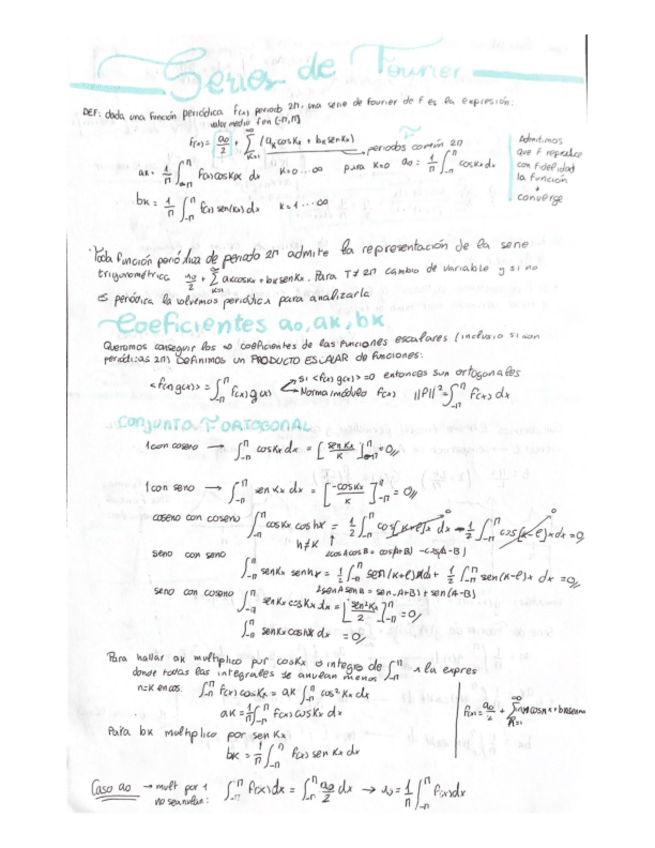 Series de Fourier
DEF: dada una función periódica f(x) periodo 2π, una serie de fourier de f es la expresión:
valor medio f en [-π,π]
f(x) = a0/2 + ∑ k=1 ∞ (ak cos kx + bk sen kx) → periodos común 2π
ak = 1/π ∫-π π f(x) cos kx dx   k=0...∞   para k=0  a0 = 1/π ∫-π π cos kx dx
bk = 1/π ∫-π π f(x) sen(kx) dx   k=1...∞
Admitimos
que F reproduce
con fidelidad
la función
↓
converge
Toda función periódica de periodo 2π admite la representación de la serie
trigonométrica a0/2 + ∑ k=1 ∞ ak cos kx + bk sen kx. Para T≠2π cambio de variable y si no
es periódica la volvemos periódica para analizarla
Coeficientes a0, ak, bk
Queremos conseguir los ∞ coeficientes de las funciones escalares (inclusio si son
periódicas 2π) Definimos un PRODUCTO ESCALAR de funciones:
<f(x) g(x)> = ∫-π π f(x) g(x)
si <f(x) g(x)> = 0 entonces son ortogonales
Norma/módulo f(x)  ||f||² = ∫-π π f(x) dx
CONJUNTO ORTOGONAL
1 con coseno → ∫-π π cos kx dx = [sen kx / k]-π π = 0//
1 con seno → ∫-π π sen kx dx = [-cos kx / k]-π π = 0//
coseno con coseno ∫-π π cos kx cos hx = 1/2 ∫-π π cos[k+l]x dx + 1/2 ∫-π π cos[k-l]x dx = 0
h≠k ↑ 2cosA cosB = cos(A+B) - cos(A-B)
seno con seno
∫-π π sen kx sen hx = 1/2 ∫-π π sen(k+l)x dx + 1/2 ∫-π π sen(k-l)x dx = 0//
2senA senB = sen(A+B) + sen(A-B)
seno con coseno ∫-π π sen kx cos kx dx = [sen² kx / 2]-π π = 0//
∫-π π sen kx cos hx dx = 0//
Para hallar ak multiplico por cos kx o integro de ∫-π π x la expres
donde todas las integrales se anulan menos
n=k en cos. ∫-π π f(x) cos kx = ak ∫-π π cos² kx dx
ak = 1/π ∫-π π f(x) cos kx dx
f(x) = a0/2 + ∑ n=1 ∞ an cos nx + bn sen nx
Para bk multiplico por sen kx
bk = 1/π ∫-π π f(x) sen kx dx
Caso a0 → mult por 1 ∫-π π f(x) dx = ∫-π π a0/2 dx → a0 = 1/π ∫-π π f(x) dx
no se anulan: